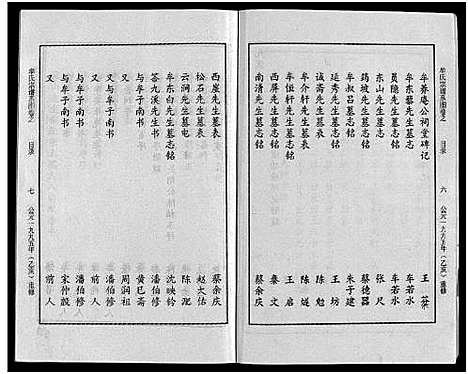 牟氏宗谱系图卷之
目录
六
公元一九九五年(乙亥)重修
牟养庵公祠堂碑记 王棻
牟东藜先生墓志铭 牟若水
员隐先生墓志铭 牟若水
东山先生墓志铭 张尺
筠坡先生墓志铭 蔡德器
牟叔吕墓志铭 朱子建
延秀先生墓志铭 王坊
诚斋先生墓表 陈勉
牟介轩先生墓表 陈璲
牟恒轩先生墓志铭 王启
清心先生墓志铭 秦文
南清先生墓志铭 蔡余庆
西崖先生墓表 蔡余庆
松石先生墓表 赵大佑
云涧先生墓志铭 陈
牟东白先生墓志铭 沈映钤
答九溪先生书 潘伯修
与牟子南书 黄巳斋
与牟子南书 周润祖
又 潘伯修
与牟子南书 宋仲殷
又 前人
牟氏宗谱系图卷之
目录
七
公元一九九五年(乙亥)重修